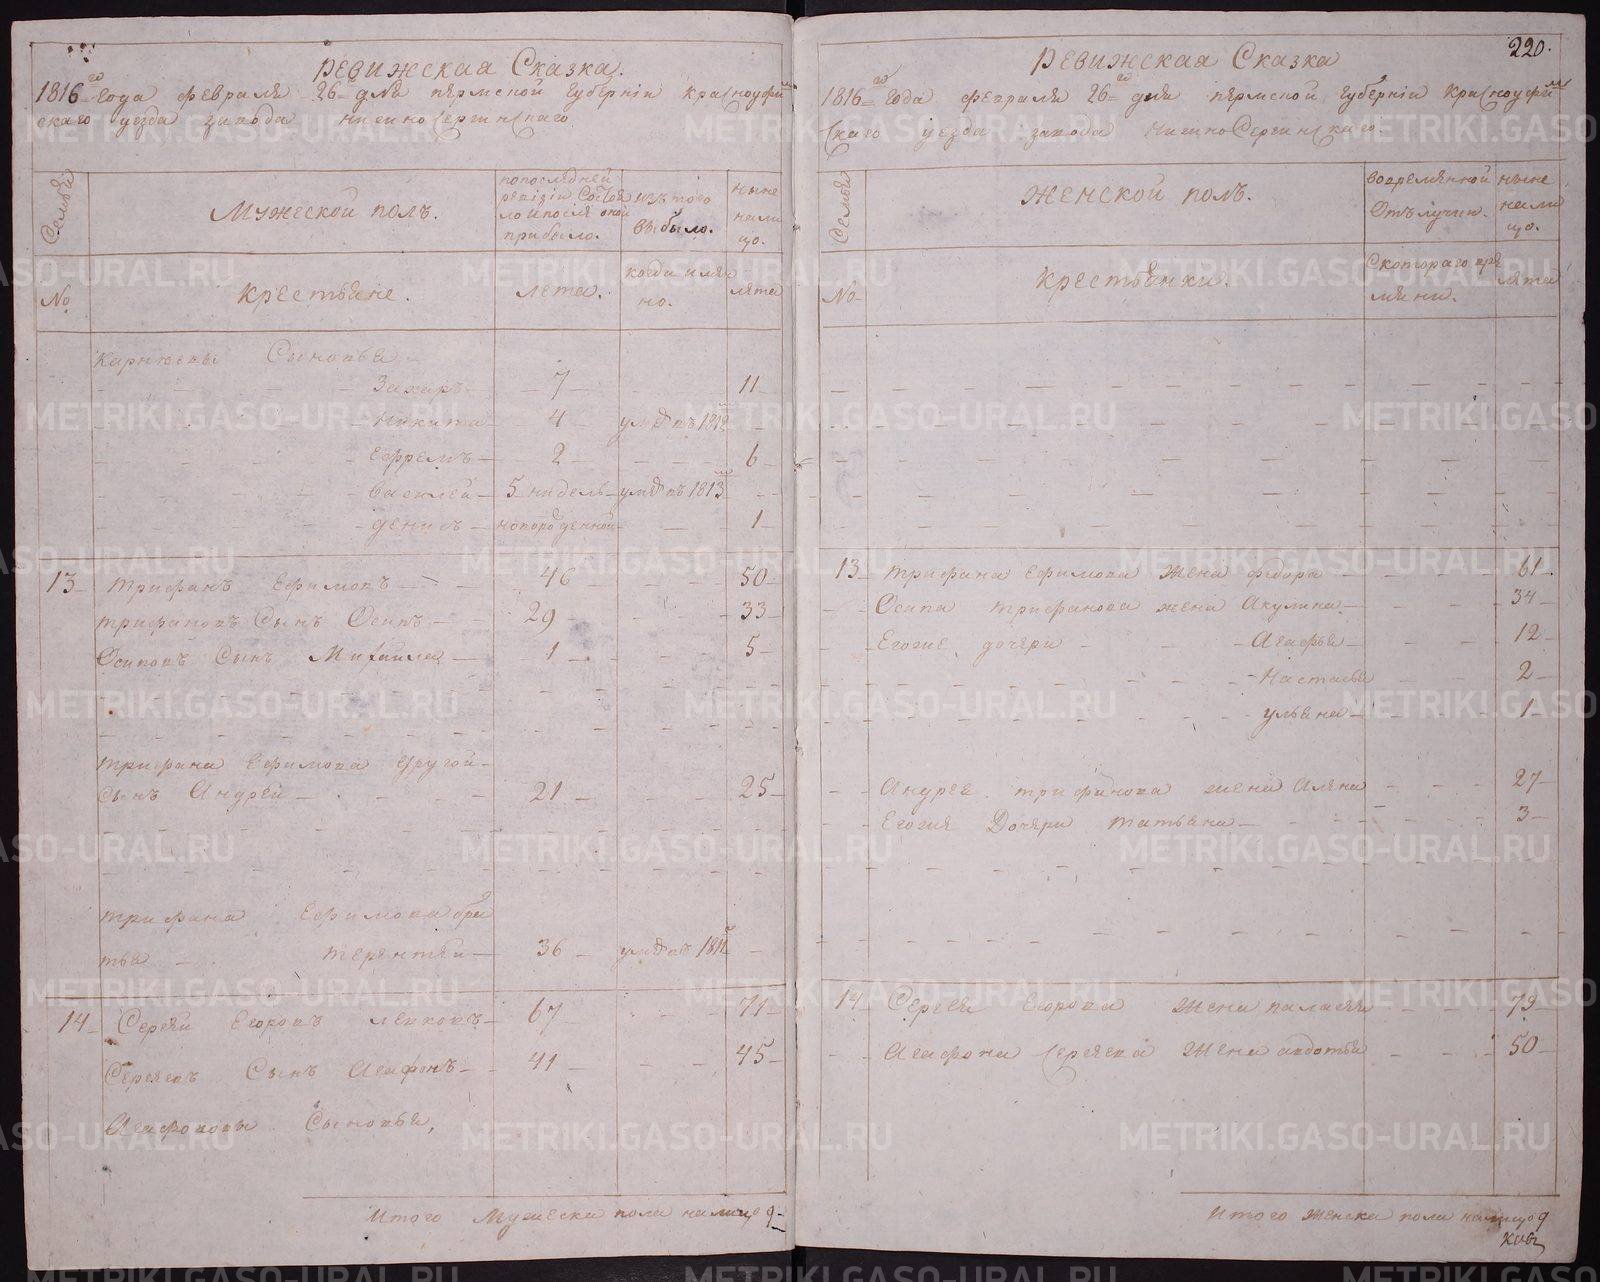 Ревижская Сказка.
1816го Года февраля 26 дня пермской Губернiи Красноуфим
скаго уезда завода нижноСергинскаго
Семьи
Мужеской полъ.
попоследней ревiзiи Состоя ло ипосле оной прибыло.
изъ того выбыло.
ныне налицо.
No
Крестьяне.
лета.
когда имянно.
лета
Карнеевы Сыновья
Захаръ 7 11
Никита 4 умре въ 1812м
Ефремъ 2 6
Василей 5 нидель умре въ 1813м
Денисъ новорожденной 1
13 Трифанъ Ефимовъ 46 50
Трифановъ Сынъ Осипъ 29 33
Осиповъ Сынъ Михайла 1 5
Трифана Ефимова другой
Сынъ Андрей 21 25
Трифана Ефимова бра
тья Терентей 36 умре въ 1812м
14 Сергей Егоровъ 67 71
Сергеевъ Сынъ Агафонъ 41 45
Агафоновы Сыновья,
Итого Мужеска пола налицо 9
220.
Ревижская Сказка
1816го Года февраля 26го дня пермской Губернiи Красноуфим
скаго уезда завода нижноСергинскаго.
Семьи
Женской полъ.
вовременной Отълучки.
ныне налицо.
No
Крестьянки.
Скотораго времяни.
лета
13 Трифана Ефимова жена федора 61
Осипа Трифанова жена Акулина 34
Егоже дочери Агафья 12
Настасья 2
ульяна 1
Андрея Трифанова жена Алена 27
Егожя Дочери Татьяна 3
14 Сергея Егорова жена паласея 79
Агафона Сергеева жена авдотья 50
Итого женска пола налицо 9